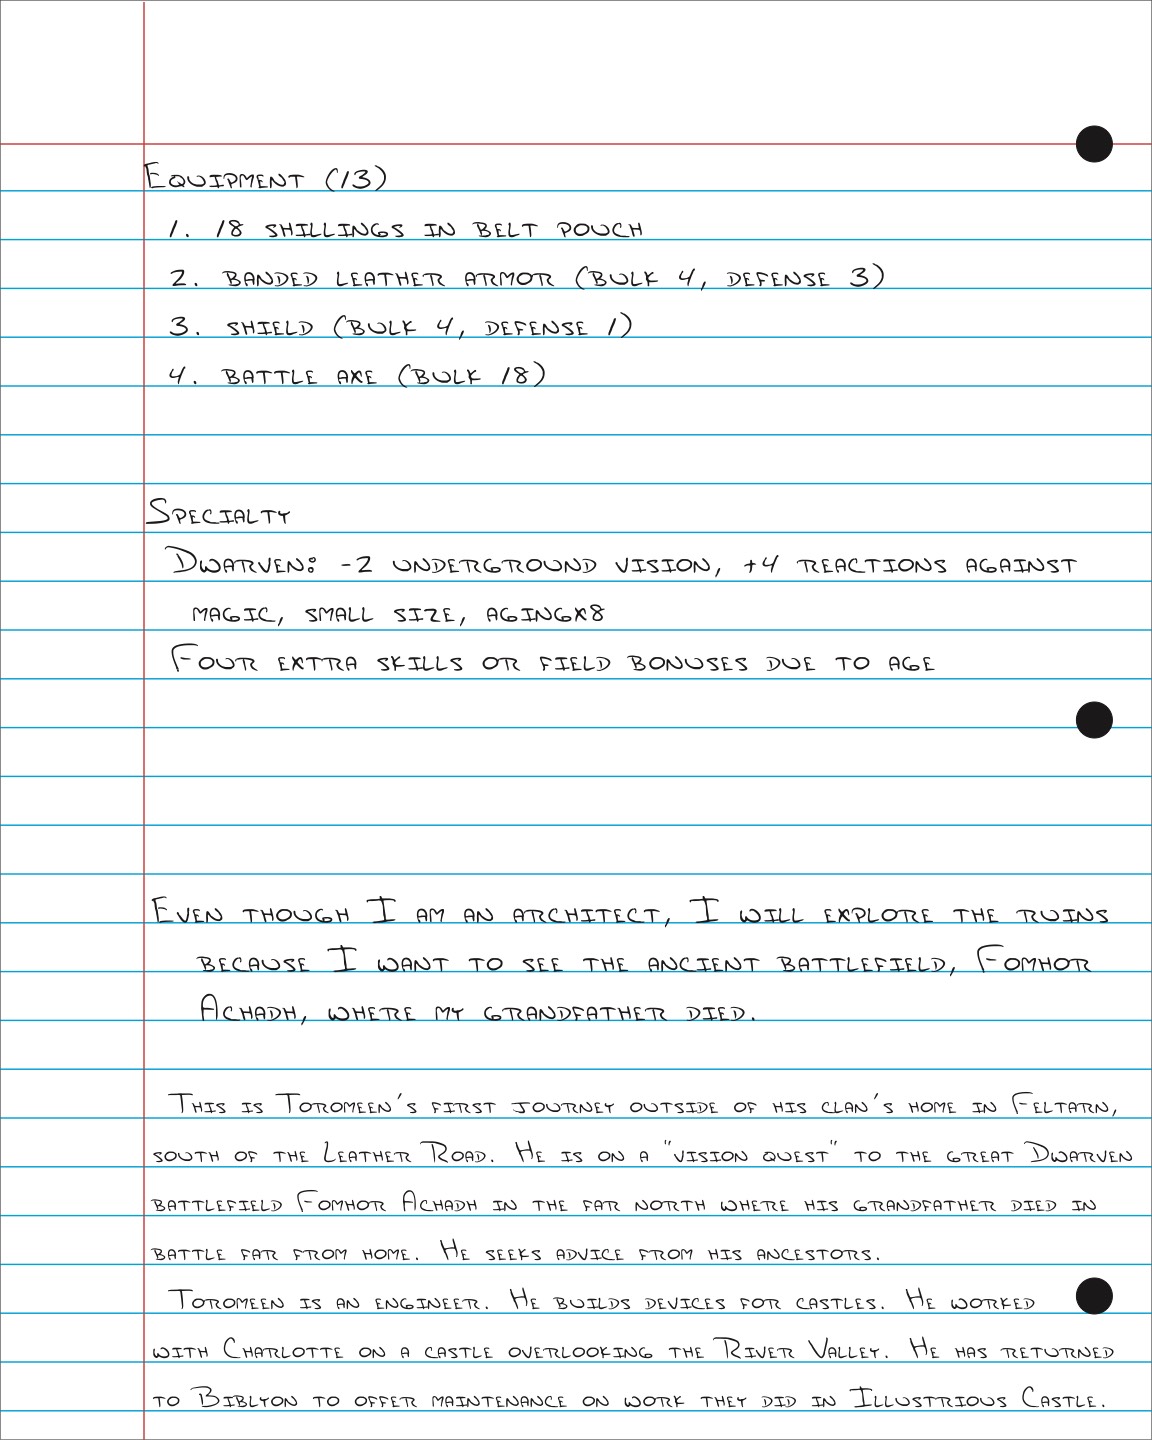 Equipment (13)
1. 18 shillings in belt pouch
2. banded leather armor (bulk 4, defense 3)
3. shield (bulk 4, defense 1)
4. battle axe (bulk 18)
Specialty
Dwarven: -2 underground vision, +4 reactions against
magic, small size, agingx8
Four extra skills or field bonuses due to age
Even though I am an architect, I will explore the ruins
because I want to see the ancient battlefield, Fomhor
Achadh, where my grandfather died.
This is Toromeen's first journey outside of his clan's home in Feltarn,
south of the Leather Road. He is on a "vision quest" to the great Dwarven
battlefield Fomhor Achadh in the far north where his grandfather died in
battle far from home. He seeks advice from his ancestors.
Toromeen is an engineer. He builds devices for castles. He worked
with Charlotte on a castle overlooking the River Valley. He has returned
to Biblyon to offer maintenance on work they did in Illustrious Castle.